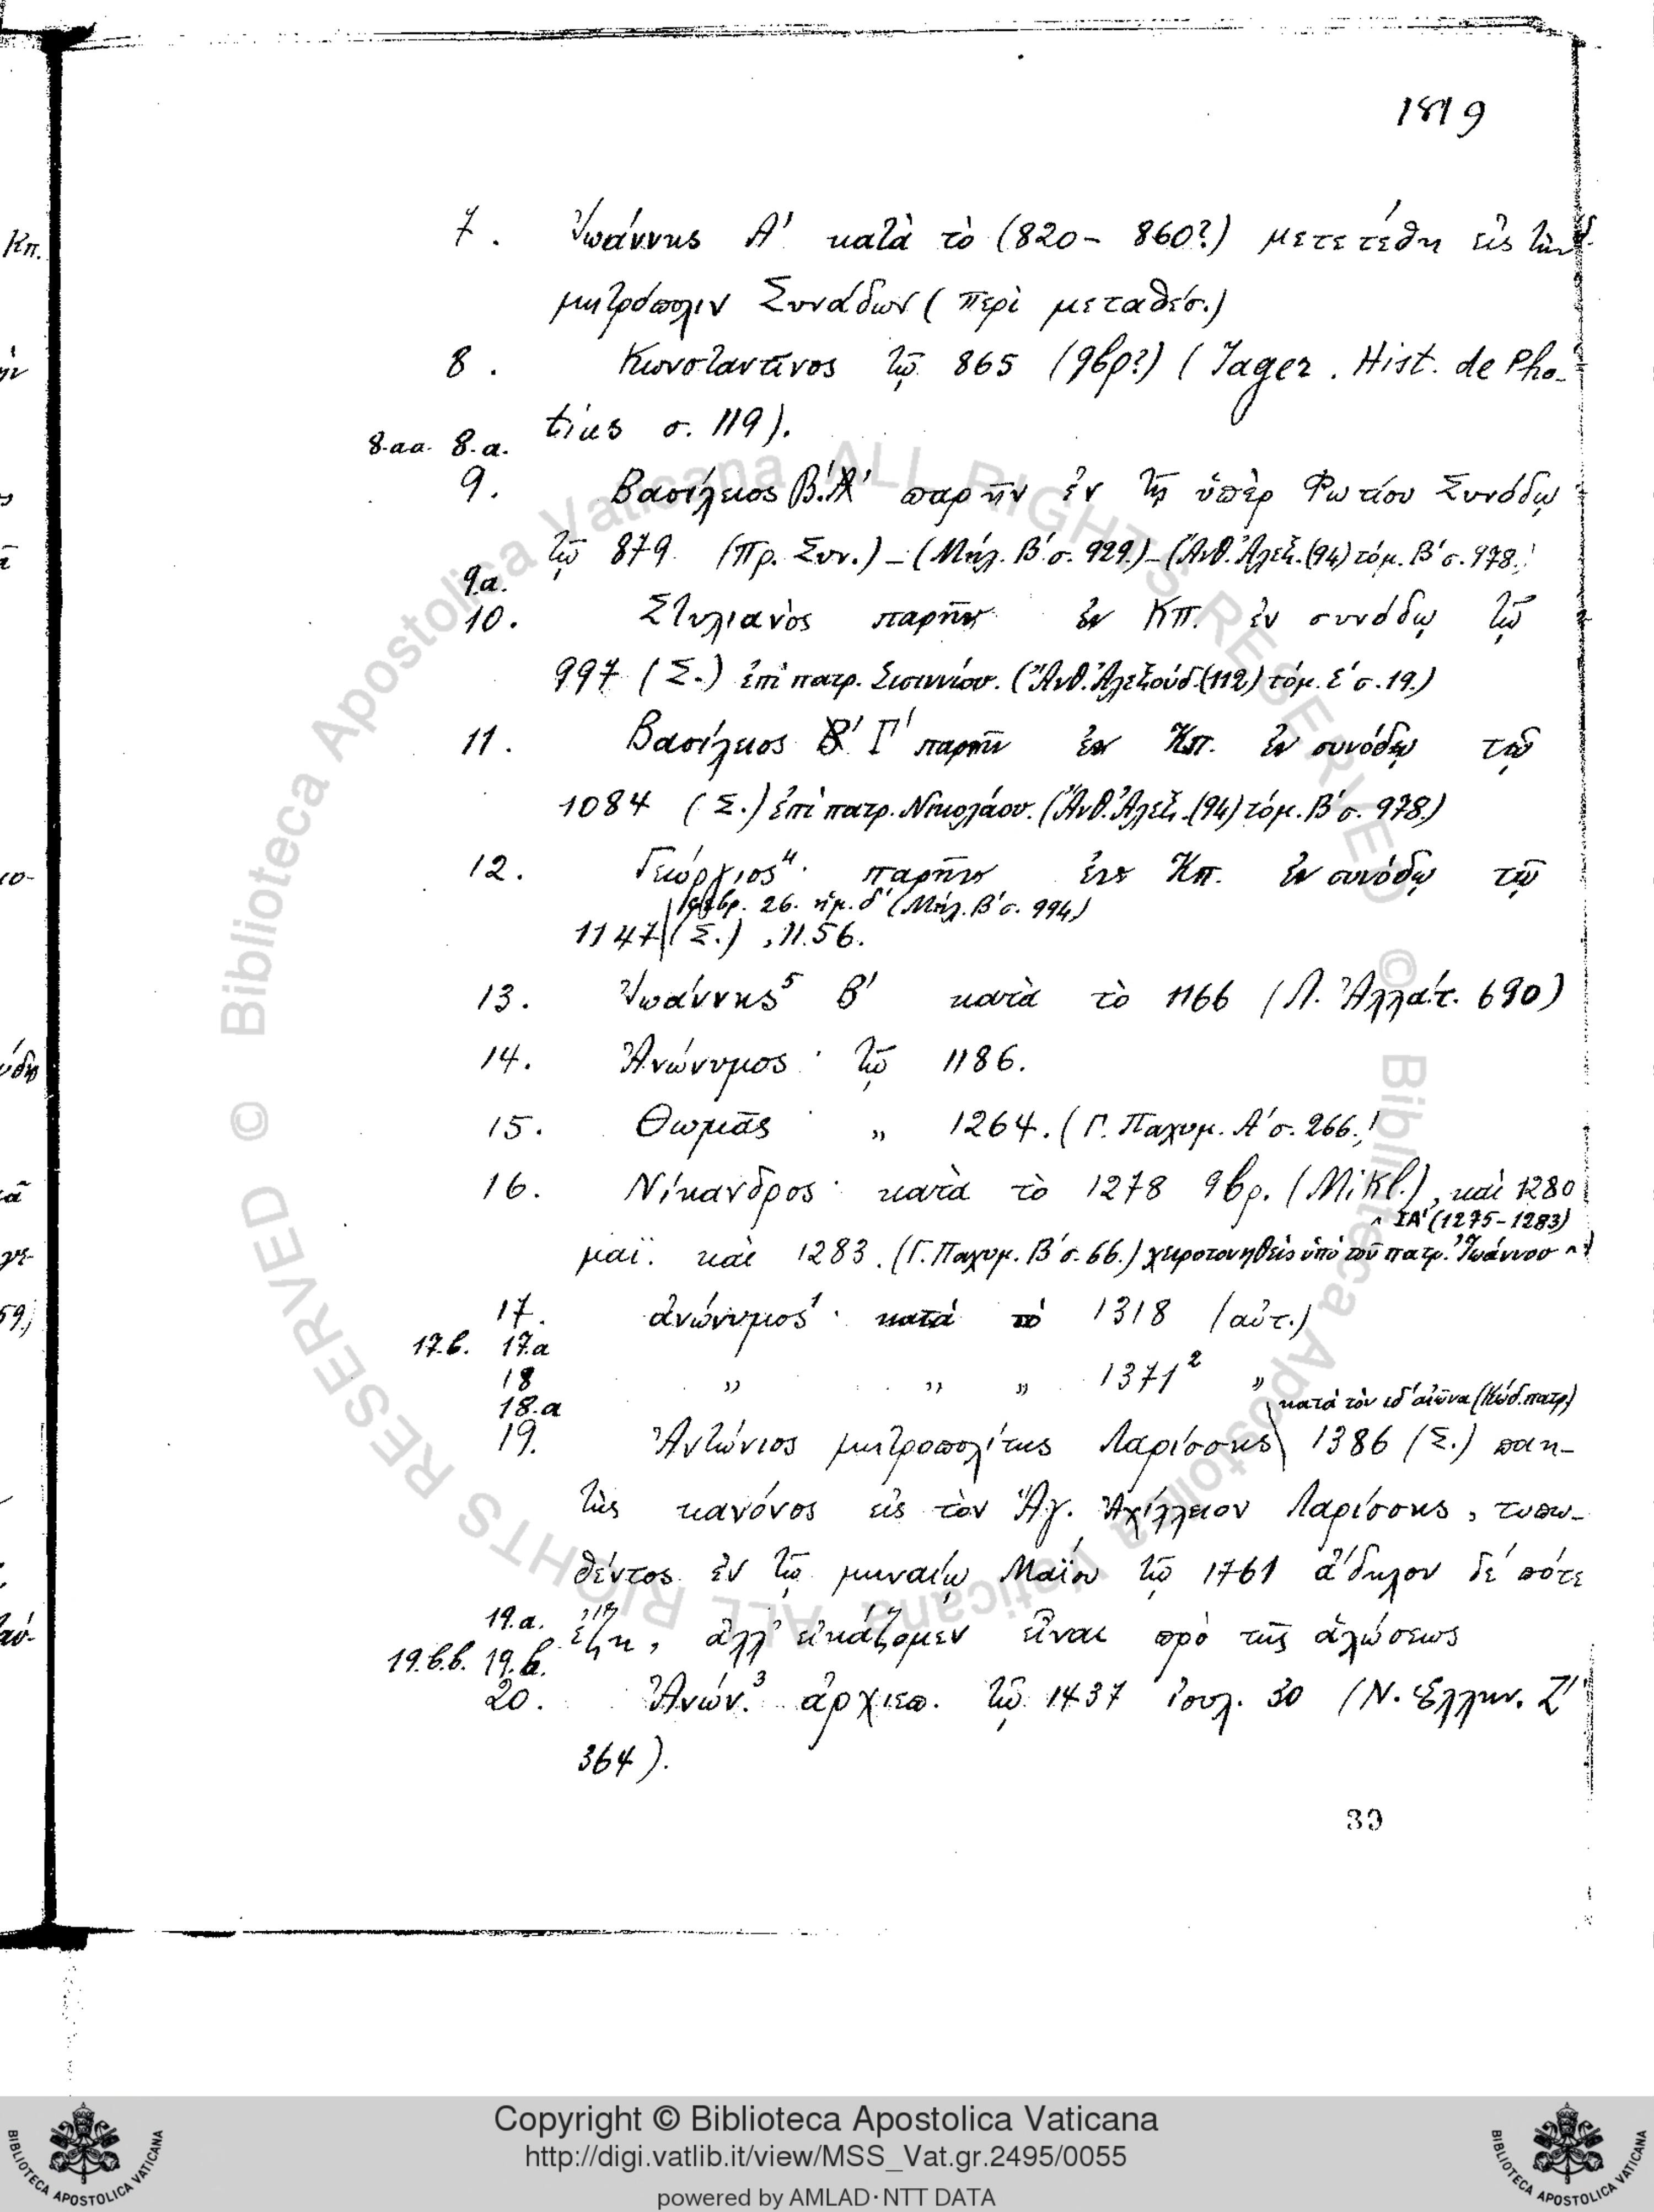 1819
7. Ἰωάννης Α' κατὰ τὸ (820 - 860?) μετετέθη εἰς τὴν
μητρόπολιν Συνάδων (περὶ μεταθέσ.)
8. Κωνσταντῖνος τῷ 865 (9βρ?) (Jager. Hist. de Pho-
tius σ. 119).
8.αα. 8.α.
9. Βασίλειος Β'. Α' παρῆν ἐν τῇ ὑπὲρ Φωτίου Συνόδῳ
τῷ 879 (Πρ. Συν.) - (Μήλ. Β' σ. 929.) - (Ἀνθ. Ἀλεξ. (94) τόμ. Β' σ. 978.)
9.α.
10. Στυλιανὸς παρῆν ἐν Κπ. ἐν συνόδῳ τῷ
997 (Σ.) ἐπὶ πατρ. Σισιννίου. (Ἀνθ. Ἀλεξούδ. (112) τόμ. Ε' σ. 19.)
11. Βασίλειος Β' Γ' παρῆν ἐν Κπ. ἐν συνόδῳ τῷ
1084 (Σ.) ἐπὶ πατρ. Νικολάου. (Ἀνθ. Ἀλεξ. (94) τόμ. Β' σ. 978.)
12. Γεώργιος⁴· παρῆν ἐν Κπ. ἐν συνόδῳ τῷ
26. ἡμ. δ' (Μήλ. Β' σ. 994)
1147 (Σ.), 11.56.
13. Ἰωάννης⁵ Β' κατὰ τὸ 1166 (Λ. Ἀλλάτ. 690)
14. Ἀνώνυμος· τῷ 1186.
15. Θωμᾶς „ 1264. (Γ. Παχυμ. Α' σ. 266.)
16. Νίκανδρος· κατὰ τὸ 1278 9βρ. (Mikl.), καὶ 1280
^ ΙΑ' (1275-1283)
μαϊ. καὶ 1283. (Γ. Παχυμ. Β' σ. 66.) χειροτονηθεὶς ὑπὸ τοῦ πατρ. Ἰωάννου ^
17. ἀνώνυμος¹· κατὰ τὸ 1318 (αὐτ.)
17.β. 17.α
18 „ „ „ 1371² „
18.α
κατὰ τὸν ιδ' αἰῶνα (Κώδ. πατρ.)
19. Ἀντώνιος μητροπολίτης Λαρίσσης 1386 (Σ.) ποιη-
τὴς κανόνος εἰς τὸν Ἅγ. Ἀχίλλειον Λαρίσσης, τυπω-
θέντος ἐν τῷ μηναίῳ Μαΐου τῷ 1761 ἄδηλον δέ πότε
19.α. ἔζη, ἀλλ' εἰκάζομεν εἶναι πρὸ τῆς ἁλώσεως
19.β.β. 19.β.
20. Ἀνών.³ ἀρχιεπ. τῷ 1437 ἰουλ. 30 (Ν. Ἑλλην. Ζ'
364).
39
Κπ.
59.)
© Biblioteca Apostolica Vaticana ALL RIGHTS RESERVED © Biblioteca Apostolica Vaticana ALL RIGHTS RESERVED
Copyright © Biblioteca Apostolica Vaticana
http://digi.vatlib.it/view/MSS_Vat.gr.2495/0055
powered by AMLAD·NTT DATA
BIBLIOTECA APOSTOLICA VATICANA
BIBLIOTECA APOSTOLICA VATICANA